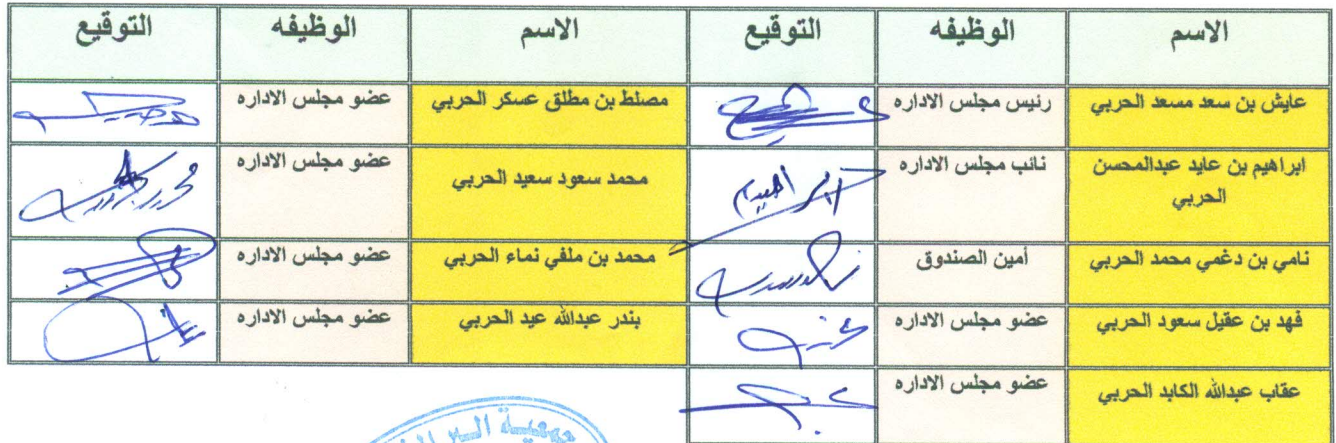 الاسم الوظيفه التوقيع الاسم الوظيفه التوقيع
عايش بن سعد مسعد الحربي رئيس مجلس الاداره مصلط بن مطلق عسكر الحربي عضو مجلس الاداره
ابراهيم بن عايد عبدالمحسن نائب مجلس الاداره محمد سعود سعيد الحربي عضو مجلس الاداره
الحربي
نامي بن دغمي محمد الحربي أمين الصندوق محمد بن ملفي نماء الحربي عضو مجلس الاداره
فهد بن عقيل سعود الحربي عضو مجلس الاداره بندر عبدالله عيد الحربي عضو مجلس الاداره
عقاب عبدالله الكابد الحربي عضو مجلس الاداره
جمعية البر